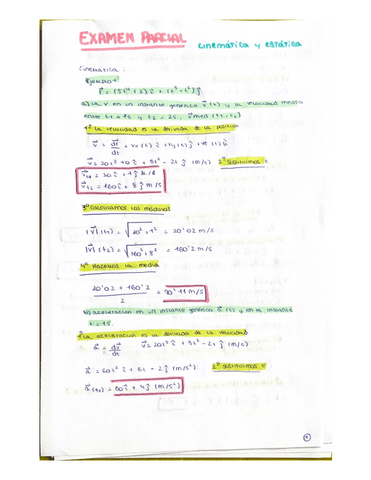 EXAMEN PARCIAL cinemática y estática
Cinemática:
Ejemplo 1
r⃗ = (5t⁴ + 2) î + (t³ - t²) ĵ
a) La v en un instante genérico v⃗ (t) y la velocidad media
entre t1 = 1s y t2 = 2s. v⃗med (t1, t2)
1º La velocidad es la derivada de la posición
v⃗ = dr⃗/dt = vx (t) î + vy (t) ĵ + vz (t)
v⃗ = 20t³ + 0 î + 3t² - 2t ĵ (m/s) 2º Sustituimos:
v⃗t1 = 20 î + 1 ĵ m/s
v⃗t2 = 160 î + 8 ĵ m/s
3º Calculamos los módulos
|v⃗| (t1) = √20² + 1² = 20'02 m/s
|v⃗| (t2) = √160² + 8² = 160'2 m/s
4º Hacemos la media
20'02 + 160'2 / 2 = 90'11 m/s
b) aceleración en un instante genérico a⃗ (t) y en el instante
t = 1s.
1º La aceleración es la derivada de la velocidad
a⃗ = dv⃗/dt v⃗ = 20t³ î + 3t² - 2t ĵ (m/s)
a⃗ = 60t² î + 6t - 2 ĵ (m/s²) 2º Sustituimos:
a⃗ (t1) = 60 î + 4 ĵ (m/s²)
1